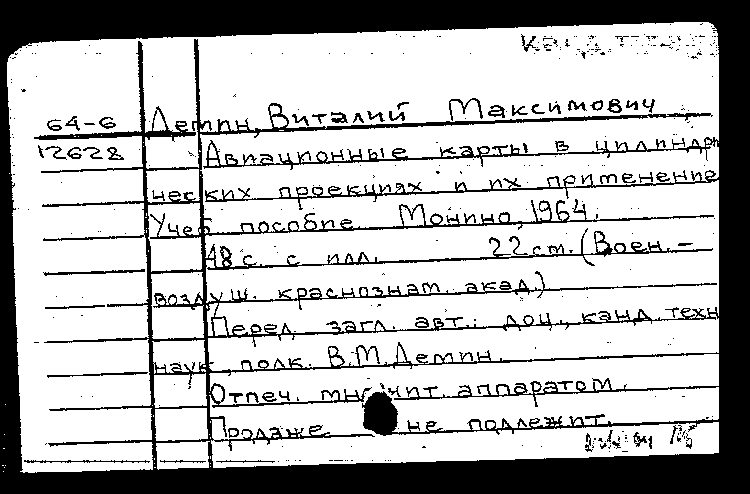 64-6 Демин, Виталий Максимович
12628 Авиационные карты в цилиндри
ческих проекциях и их применение
Учеб пособие. Монино, 1964.
48 с. с илл. 22 см. (Воен.-
воздуш. краснознам. акад.)
Перед загл. авт.: доц., канд. техн
наук, полк. В.М. Демин.
Отпеч. множит. аппаратом.
Продаже не подлежит.